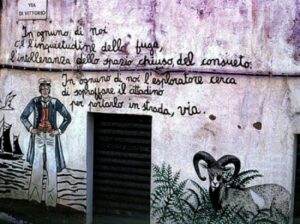 VIA
DI VITTORIO
In ognuno di noi
c'è l'inquietudine della fuga,
l'intolleranza dello spazio chiuso del consueto.
In ognuno di noi l'esploratore cerca
di sopraffare il cittadino
per portarlo in strada, via.